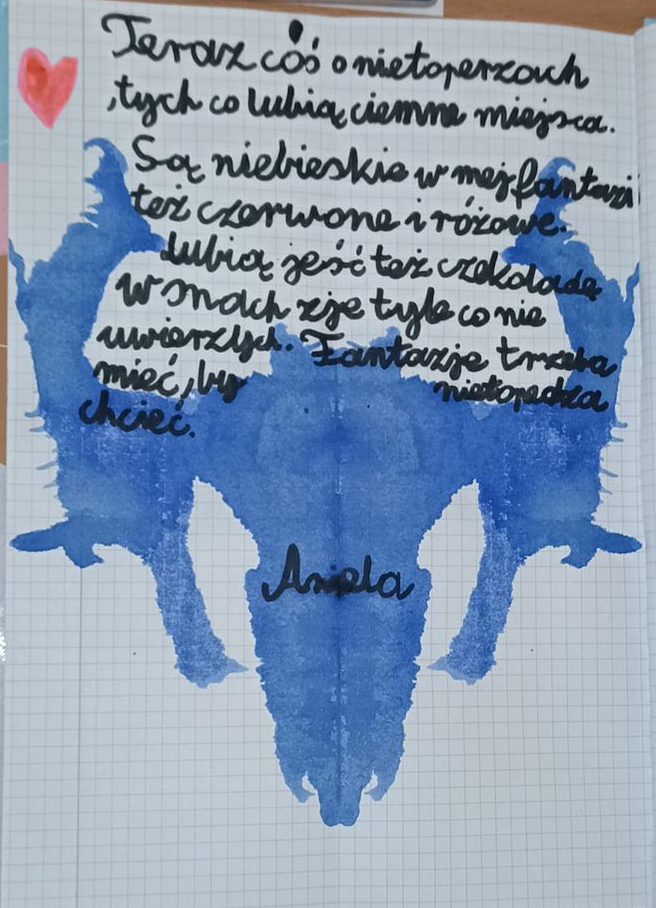 Teraz coś o nietoperzach
,tych co lubią ciemne miejsca.
Są niebieskie w mej fantazji
też czerwone i różowe.
Lubią jeść też czekoladę
w snach zje tyle co nie
uwierzych. Fantazje trzeba
mieć, by nietopedza
chcieć.
Aniela